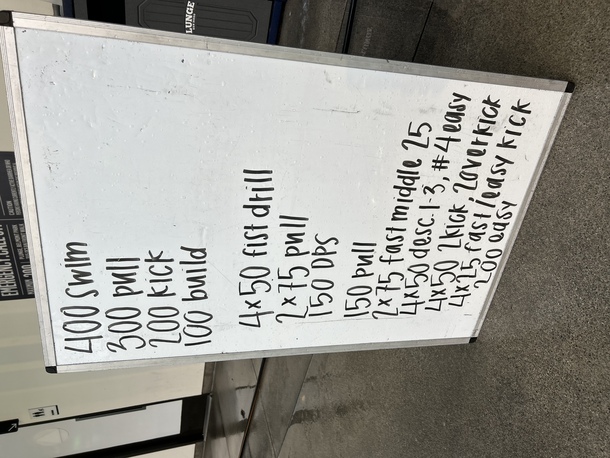 EMERGENCY: CALL 911
CAUTION
400 swim
300 pull
200 kick
100 build
4x50 fist drill
2x75 pull
150 DPS
150 pull
2x75 fast middle 25
4x50 desc. 1-3, #4 easy
4x50 2kick, 2overkick
4x25 fast/easy kick
200 easy
LUNGE